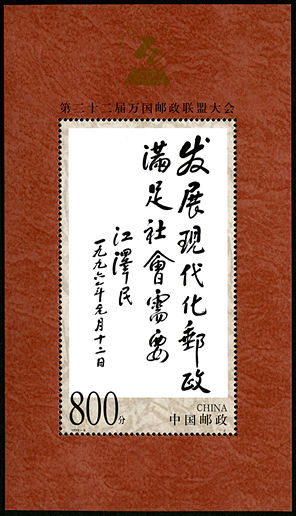 第二十二届万国邮政联盟大会
发展現代化郵政
滿足社會需要
江澤民
一九九六年元月十二日
800分
CHINA
中国邮政